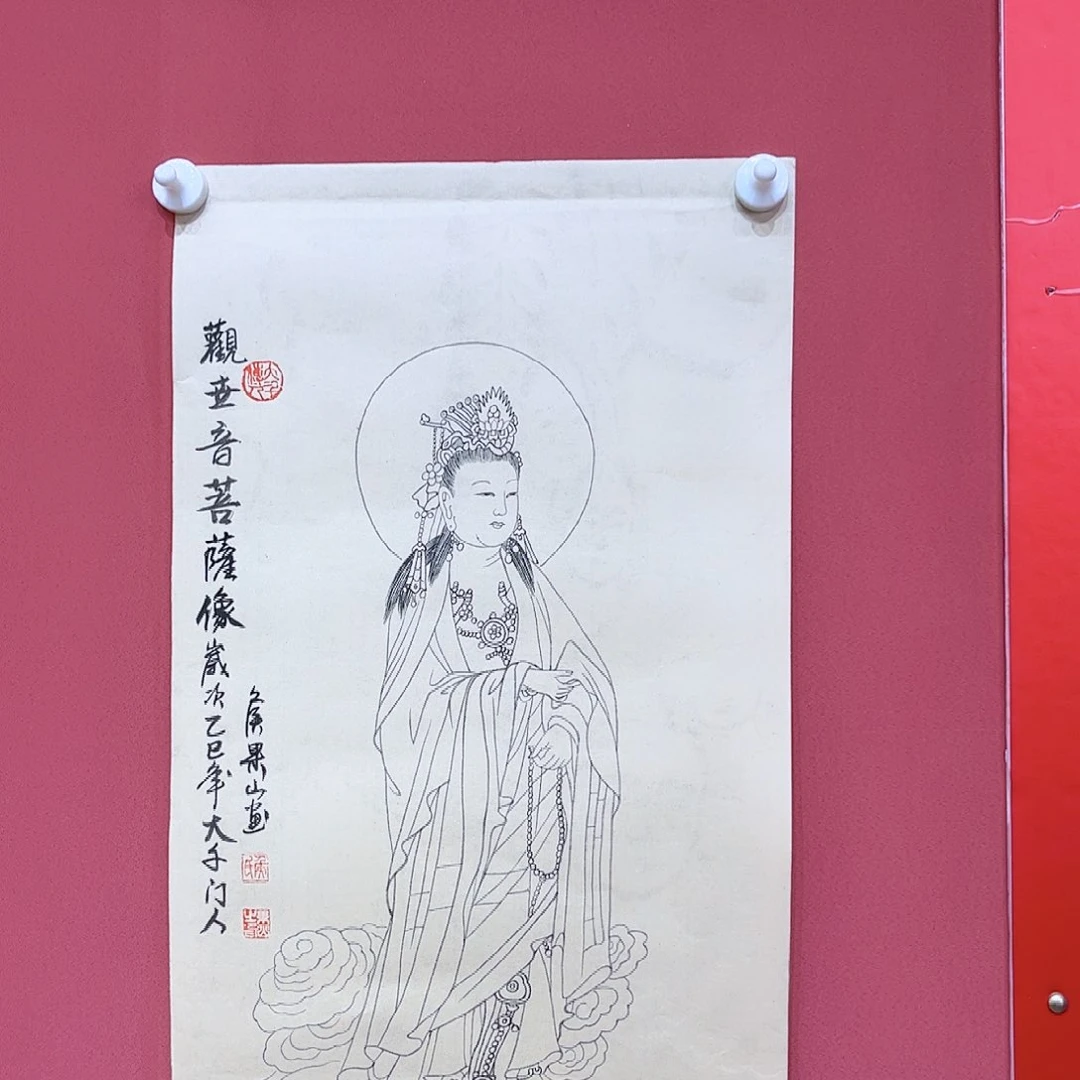 觀世音菩薩像歲次乙巳年大千门人
侯果山画